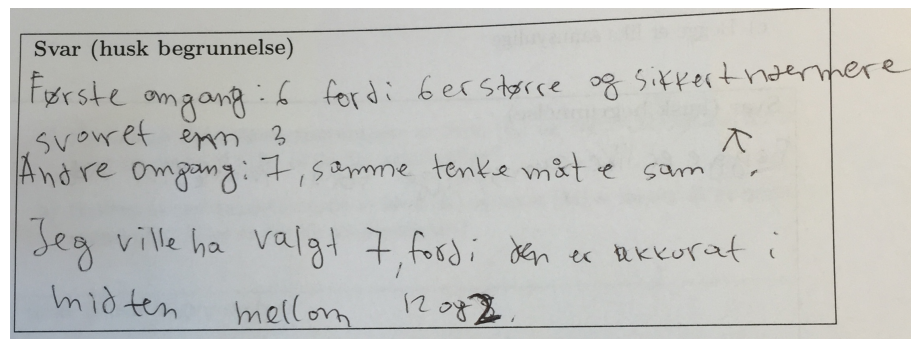 Svar (husk begrunnelse)
Første omgang: 6 fordi 6 er større og sikkert nærmere
svaret enn 3
Andre omgang: 7, samme tenke måte sam ↑.
Jeg ville ha valgt 7, fordi den er akkurat i
midten mellom 12 og 2.